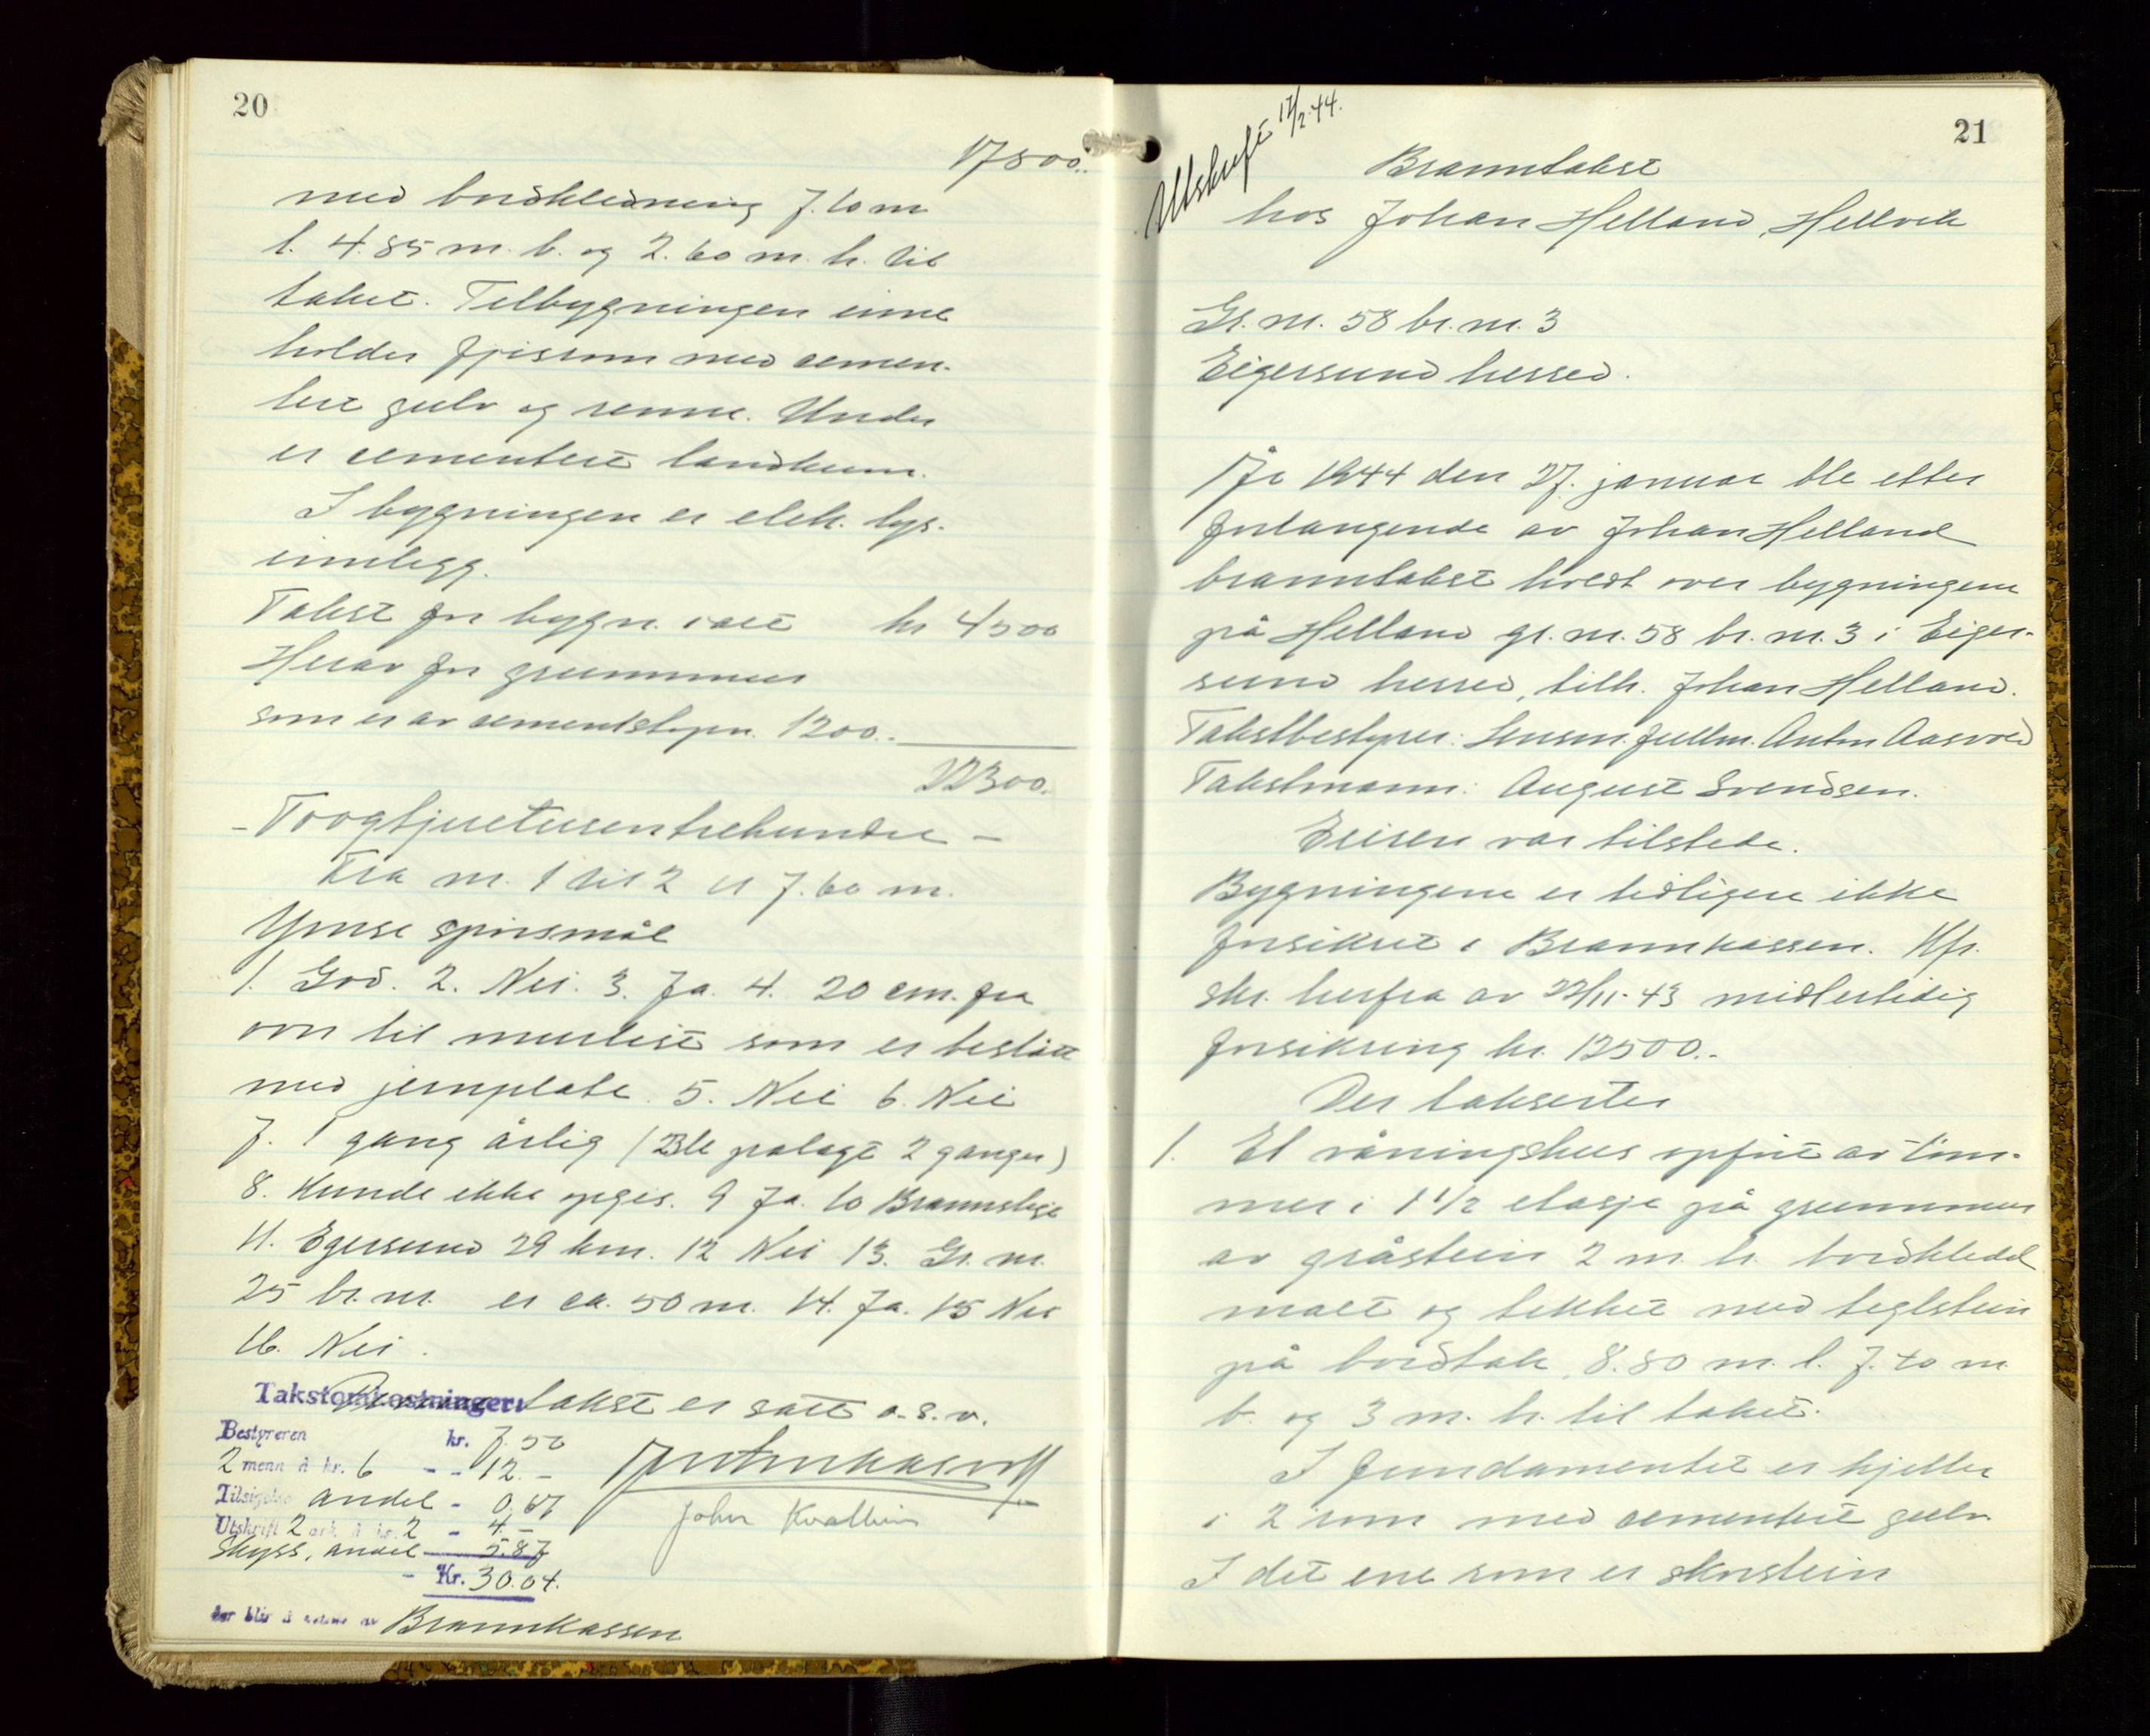 20
17800.
med bordkledning 7.60 m
l. 4.85 m. b. og 2.60 m. h. til
taket. Tilbygningen inne
holder fjøsrom med cemen-
tert gulv og renne. Under
er cementert landkum.
I bygningen er elek. lys-
innlegg.
Takst for bygn. i alt kr 4500
Herav for grunnmur
som er av cementstøpn. 1200.-
22300.
- Toogtjuetusentrehundre -
Fra nr. 1 til 2 er 7.60 m.
Ymse spørsmål
1. God. 2. Nei. 3. Ja. 4. 20 cm. fra
ovn til murlist som er beslått
med jernplate. 5. Nei 6. Nei
7. 1 gang årlig (Ble pålagt 2 ganger)
8. Kunde ikke opgis. 9 Ja. 10 Brannstige
11. Egersund 29 km. 12 Nei 13. Gr. nr.
25 br. nr. er ca. 50 m. 14. Ja. 15 Nei
16. Nei.
Denne takst er satt o.s.v.
Takstomkostninger:
Bestyreren kr. 7.50
2 menn à kr. 6 - - 12.-
Tilsigelse andel - 0.67
Utskrift 2 ark à kr. 2 - 4.-
Skyss, andel 5.87
- Kr. 30.04.
der blir å betale av Brannkassen
John
21
Utskrift 17/2.44.
Branntakst
hos Johan Helland, Hellvik
Gr. nr. 58 br. nr. 3
Eigersund herred.
År 1944 den 27. januar ble etter
forlangende av Johan Helland
branntakst holdt over bygningene
på Helland gr. nr. 58 br. nr. 3 i Eiger-
sund herred, tilh. Johan Helland.
Takstbestyrer: Lensm. fullm. Anton Aasvold
Takstmann: August Svendsen.
Eieren var tilstede.
Bygningene er tidligere ikke
forsikret i Brannkassen. Kfr.
skr. herfra av 22/11-43 midlertidig
forsikring kr. 12500.-
Der takserter
1. Et våningshus opført av tøm-
mer i 1 1/2 etasje på grunnmur
av gråstein 2 m. h. bordkledd
malt og tekket med teglstein
på bordtak, 8.80 m. l. 7.40 m
b. og 3 m. h. til taket.
I fundamentet er kjeller
i 2 rom med cementert gulv.
I det ene rom er skorstein